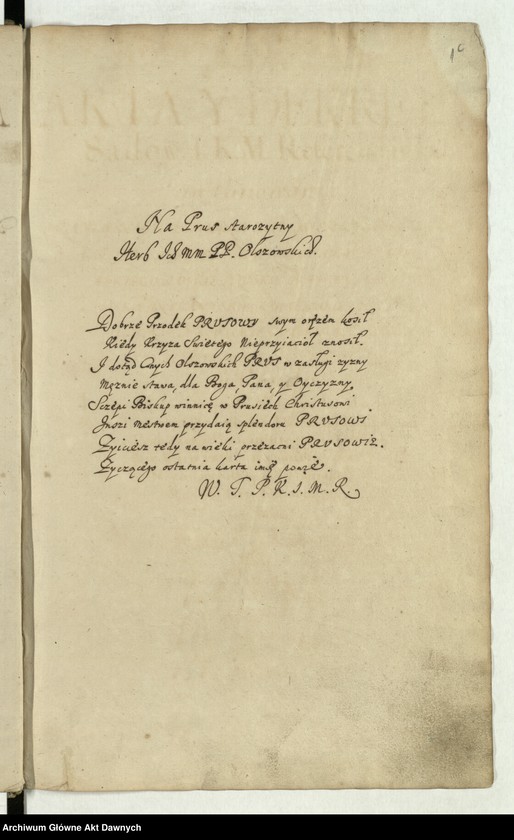 Na Prus starozytny
Herb Ich mm PP. Olszowskich.
Dobrze Przodek PRUSOWY swym orężem kosił
Kiedy Krzyza Swiętego Nieprzyiacioł znosił.
I dotąd Cnych Olszowskich PRUS w zasługi zyzny
Mężnie stawa, dla Boga, Pana, y Oyczyzny.
Sczepi Biskup winnicę w Prusiech Christusowi
Inszi męstwem przydaią splendoru PRUSOWI.
Zyicież tedy na wieki przezacni PRUSOWIE.
Zyczącego ostatnia karta imię powie.
W. T. P. K. J. M. R.
Archiwum Główne Akt Dawnych